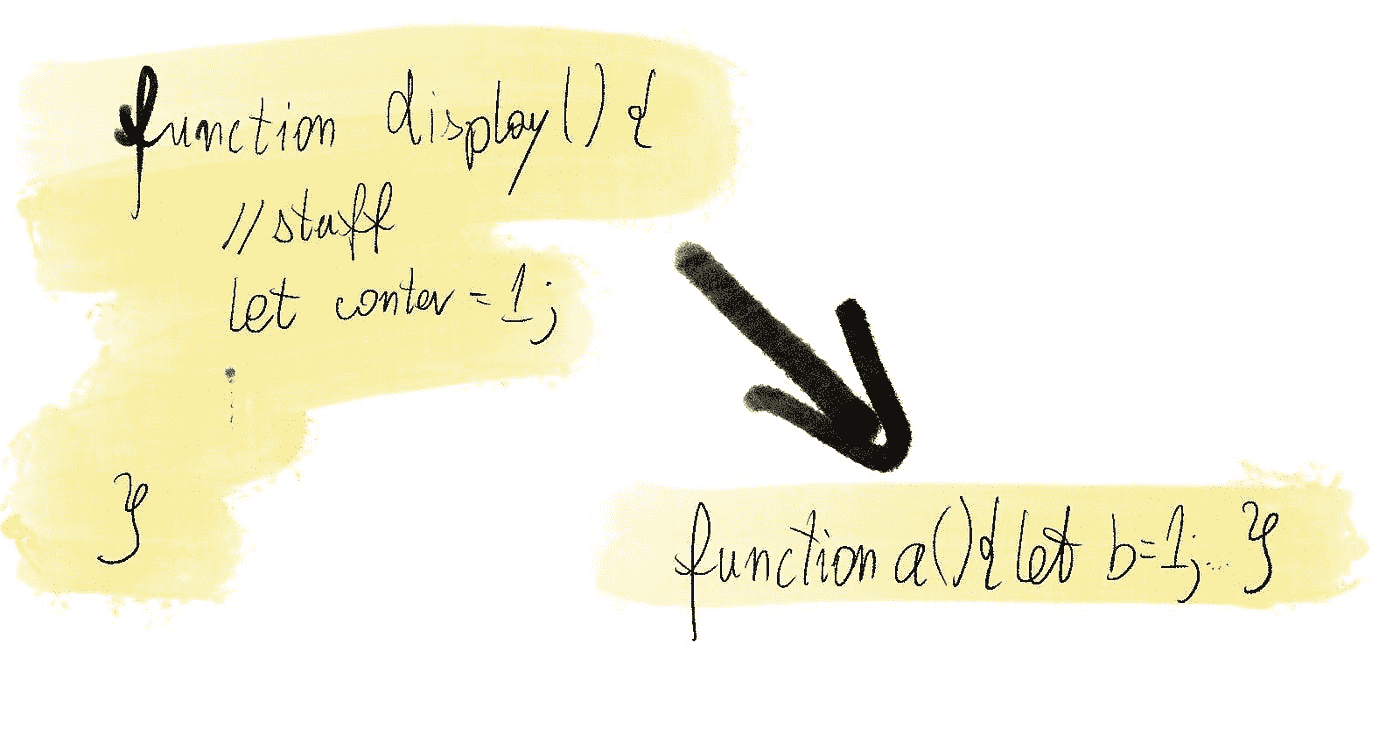 function display(){
//stuff
let conter = 1;
}
function a(){ let b=1;... }